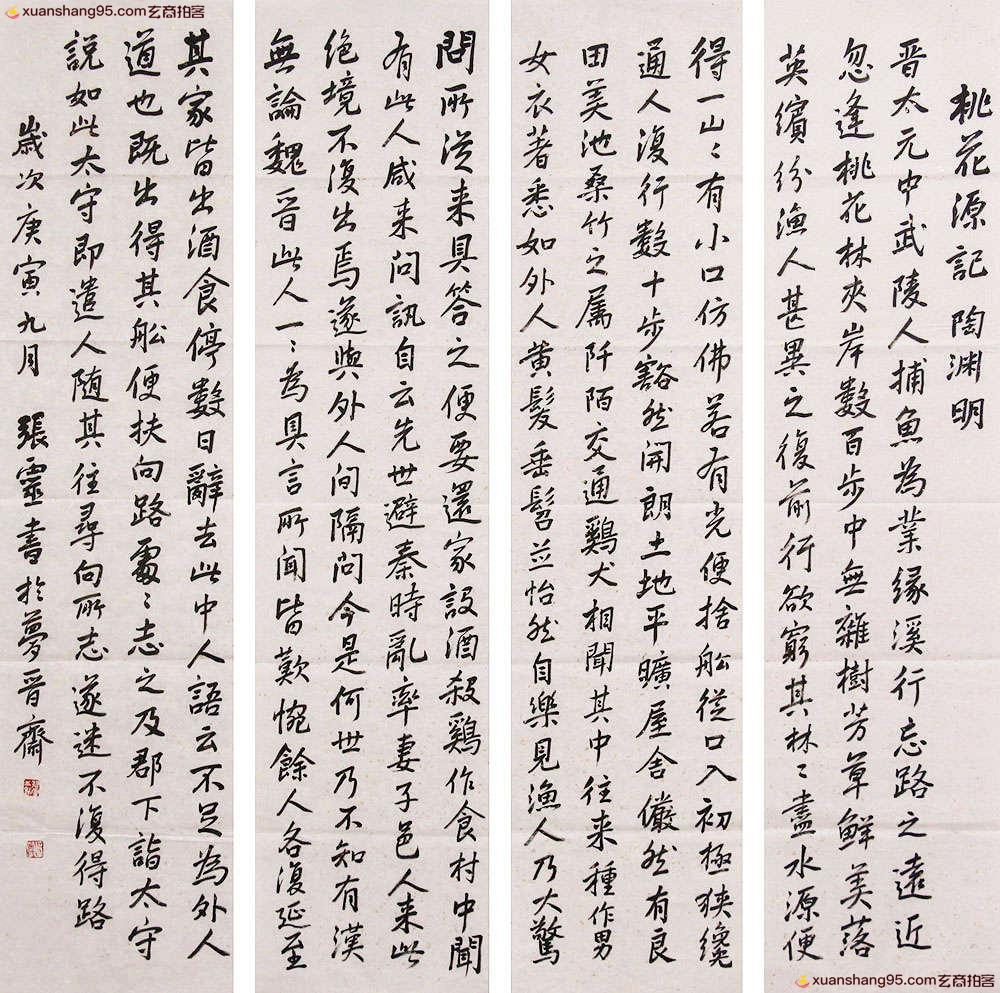 xuanshang95.com玄商拍客
桃花源記 陶渊明
晋太元中武陵人捕魚為業缘溪行忘路之遠近
忽逢桃花林夾岸數百步中無雜樹芳草鮮美落
英繽纷渔人甚異之復前行欲窮其林〻盡水源便
得一山〻有小口仿佛若有光便捨船從口入初極狭纔
通人復行數十步豁然開朗土地平曠屋舍儼然有良
田美池桑竹之属阡陌交通鷄犬相聞其中往来種作男
女衣著悉如外人黄髮垂髫並怡然自樂見漁人乃大驚
問所從来具答之便要還家設酒殺鷄作食村中聞
有此人咸来問訊自云先世避秦時亂率妻子邑人来此
绝境不復出焉遂與外人间隔問今是何世乃不知有漢
無論魏晋此人一〻為具言所闻皆歎惋餘人各復延至
其家皆出酒食停數日辭去此中人語云不足為外人
道也既出得其船便扶向路處〻志之及郡下詣太守
説如此太守即遣人随其往尋向所志遂迷不復得路
歲次庚寅九月 張靈書於夢晋齋
xuanshang95.com玄商拍客